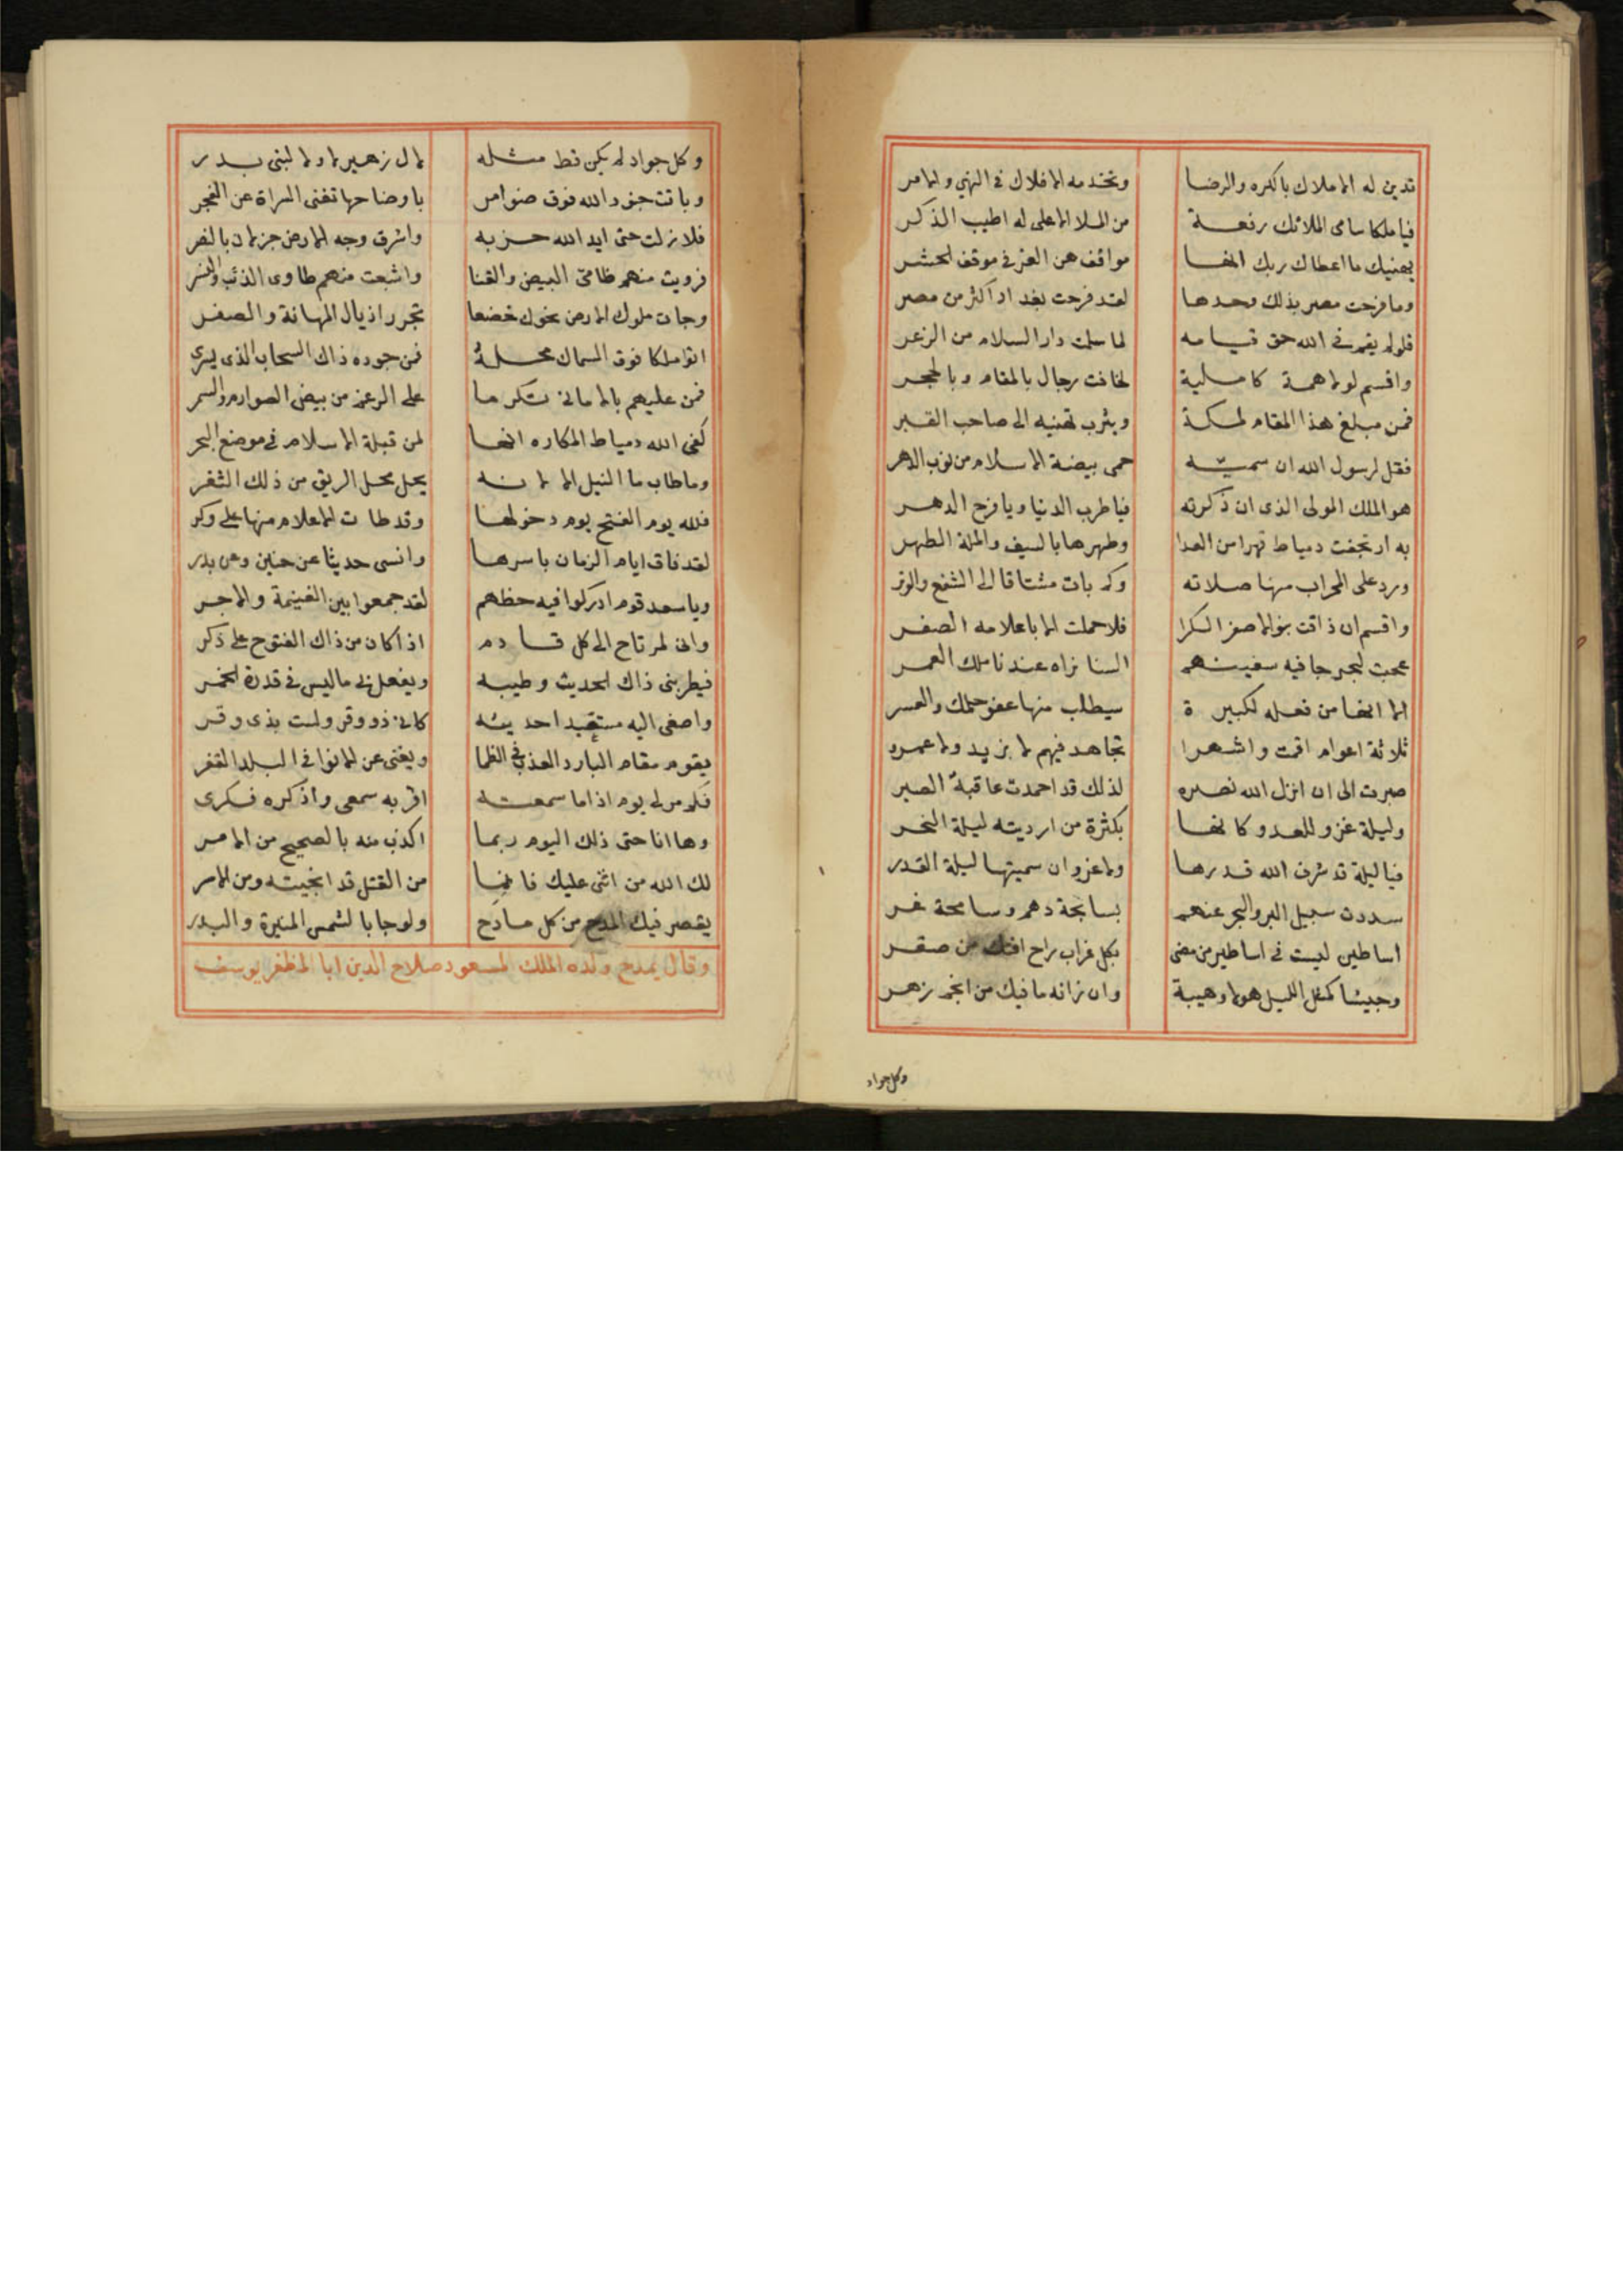 تدين له الاملاك بالكره والرضا ويخدمه الافلاك في النهي والامر
فيا ملكا سامى الملائك رفعة من الملا الاعلى له اطيب الذكر
يهنيك ما اعطاك ربك انها مواقف هن العز في موقف الحشر
وما فرحت مصر بذلك وحدها لقد فرحت بغداد اكثر من مصر
فلولم يقم في الله حق قيامه لما سلمت دار السلام من الزعر
واقسم لولا همة كاملية لخافت رجال بالمقام وبالحجر
فمن مبلغ هذا المقام لمكة ويثرب تهنيه الى صاحب القبر
فقل لرسول الله ان سميّه حمى بيضة الاسلام من نوب الدهر
هو الملك المولى الذى ان ذكرته فيا طرب الدنيا ويا فرح الدهر
به ارتجفت دمياط قهرا من العدا وطهرها بالسيف والملة الطهر
ورد على المحراب منها صلاته وكم بات مشتاقا الى الشفع والوتر
واقسم ان ذاقت بنو الاصفر الكرا فلا حملت الا باعلامه الصفر
عجبت لبحر جا فيه سفينهم السنا نراه عندنا ملك العمر
الا انها من فعله لكبيرة سيطلب منها عفو حملك والعسر
ثلاثة اعوام اقمت واشهرا تجاهد فيهم لا بزيد ولا عمرو
صبرت الى ان انزل الله نصره لذلك قد احمدت عاقبة الصبر
وليلة غزو للعدو كانها بكثرة من ارديته ليلة النحر
فيا ليلة قد شرف الله قدرها ولا غرو ان سميتها ليلة القدر
سددت سبيل البر والبحر عنهم بسابحة دهم وسابحة غر
اساطين ليست في اساطير من مضى بكل غراب راح افتك من صقر
وجيشا كمثل الليل هولا وهيبة وان زانه ما فيك من انجم زهر
وكل جواد
وكل جواد لم يكن قط مثله لال زهير لا ولا لبنى بدر
وباتت جنود الله فوق ضوامر باوضاحها تغنى السراة عن الفجر
فلا زلت حتى ايد الله حزبه واشرق وجه الارض جزلان بالنصر
فرويت منهم ظامى البيض والقنا واشبعت منهم طاوى الذئب والنسر
وجات ملوك الارض نحوك خضعا تجرر اذيال المهانة والصغر
اتوا ملكا فوق السماك محلهُ فمن جوده ذاك السحاب الذى يسري
فمن عليهم بالامانى تكرما على الرغم من بيض الصوارم والسمر
كفى الله دمياط المكاره انها لمن قبلة الاسلام في موضع البحر
وما طاب ما النيل الا لانه يحل محل الريق من ذلك الثغر
فلله يوم الفتح يوم دخولها وقد طات الاعلام منها على وكر
لقد فاق ايام الزمان باسرها وانسى حديثا عن حنين وعن بدر
ويا سعد قوم ادركوا فيه حظهم لقد جمعوا بين الغنيمة والاجر
وانى لمرتاح الى كل قادم اذا كان من ذاك الفتوح على ذكر
فيطربنى ذاك الحديث وطيبه ويفعل بى ما ليس في قدرة الخمر
واصغى اليه مستعيدا حديثه كانى ذو وقر ولست بذى وقر
يقوم مقام البارد العذب في الظما ويغنى عن الانوا في البلد القفر
فكم مر لى يوم اذا ما سمعته اقر به سمعى واذكره فكرى
وها انا حتى ذلك اليوم ربما اكذب منه بالصحيح من الامر
لك الله من اثنى عليك فانما من القتل قد انجيته ومن الاسر
يقصر فيك المدح من كل مادح ولو جا بالشمس المنيرة والبدر
وقال يمدح ولده الملك المسعود صلاح الدين ابا المظفر يوسف